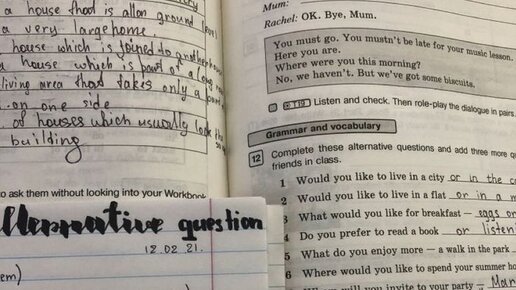 a house that is all on ground level
a very large home.
house which is joined to another house
a house which is part of a long row
living area that takes only a
on one side
of houses which usually look the
building
to ask them without looking into your Workbook
Alternative question
12.02.21.
em)
Mum:
Rachel: OK. Bye, Mum.
You must go. You mustn't be late for your music lesson.
Here you are.
Where were you this morning?
No, we haven't. But we've got some biscuits.
T19 Listen and check. Then role-play the dialogue in pairs.
Grammar and vocabulary
12 Complete these alternative questions and add three more q
friends in class.
1 Would you like to live in a city or in the c
2 Would you like to live in a flat or in a m
3 What would you like for breakfast — eggs or
4 Do you prefer to read a book or listen
5 What do you enjoy more – a walk in the park
6 Where would you like to spend your summer ho
will you invite to your party — Mar